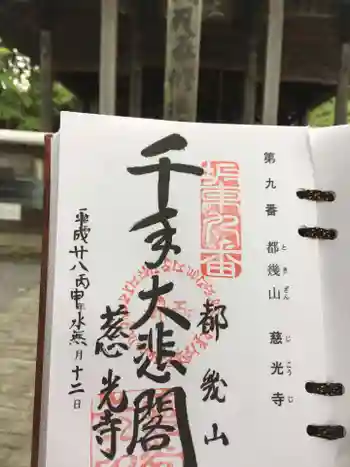 第九番 都幾山 慈光寺
ときざん じこうじ
坂東九番
都幾山
千手大悲閣
慈光寺
平成廿八丙申水無月十二日